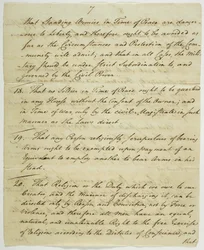 7
that Standing Armies in Time of Peace are dangerous
to Liberty, and therefore ought to be avoided as
far as the Circumstances and Protection of the Com-
munity will admit; and that in all Cases, the Mili-
tary should be under strict Subordination to and
governed by the Civil Power
18. That no Soldier in Time of Peace ought to be quartered
in any House without the Consent of the Owner, and
in Time of War only by the civil Magistrate in such
manner as the Laws direct
19. That any Person religiously scrupulous of bearing
Arms ought to be exempted upon payment of an
Equivalent to employ another to bear Arms in his
stead.
20. That Religion or the Duty which we owe to our
Creator, and the Manner of discharging it, can be
directed only by Reason and Conviction, not by Force or
Violence, and therefore all Men have an equal,
natural and unalienable Right to the free Exercise
of Religion according to the Dictates of Conscience, and
that